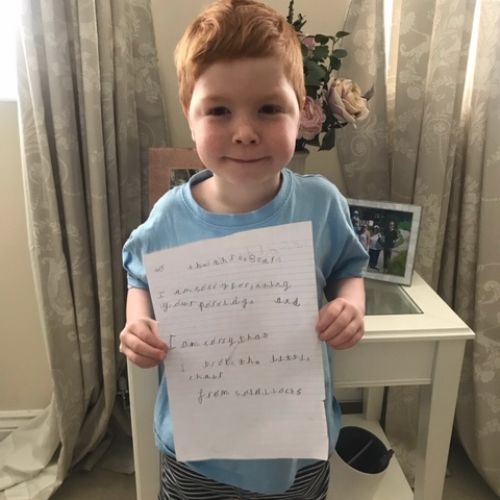 to the three bears
I am sorry for eating
your poredge and
I am sorry that
I broke the little
chair
from goldilocks